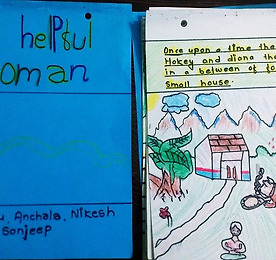 helpful
oman
Anchala, Nikesh
Sonjeep
Once upon a time the
Hokey and diona the
in a between of fo
Small house.